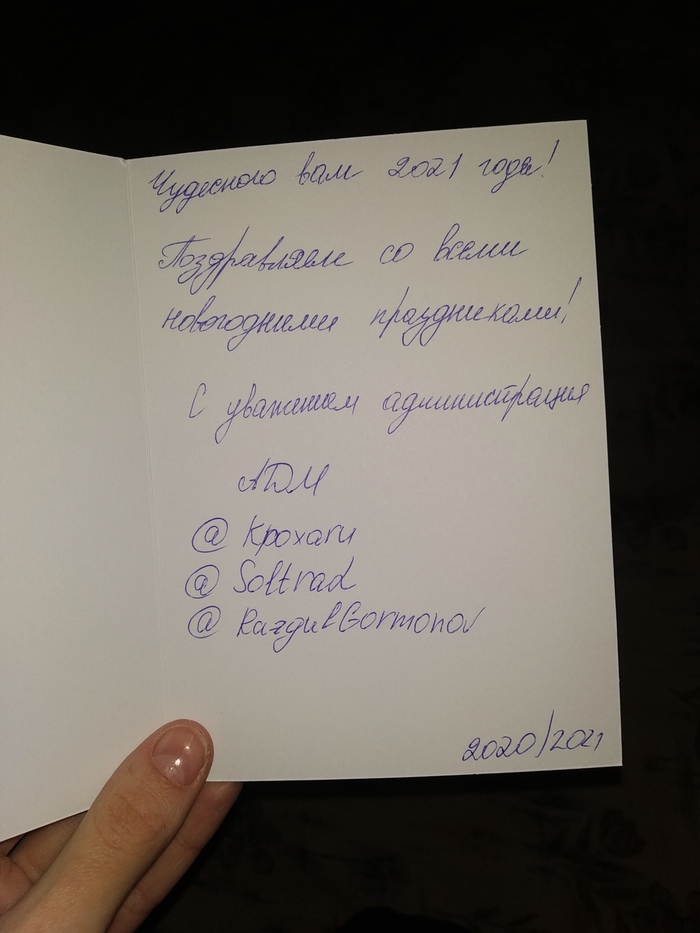 Чудесного вам 2021 года!
Поздравляем со всеми
новогодними праздниками!
С уважением администрация
АДМ
@ Kpoxaru
@ Soltrad
@ RazgulGormonov
2020/2021